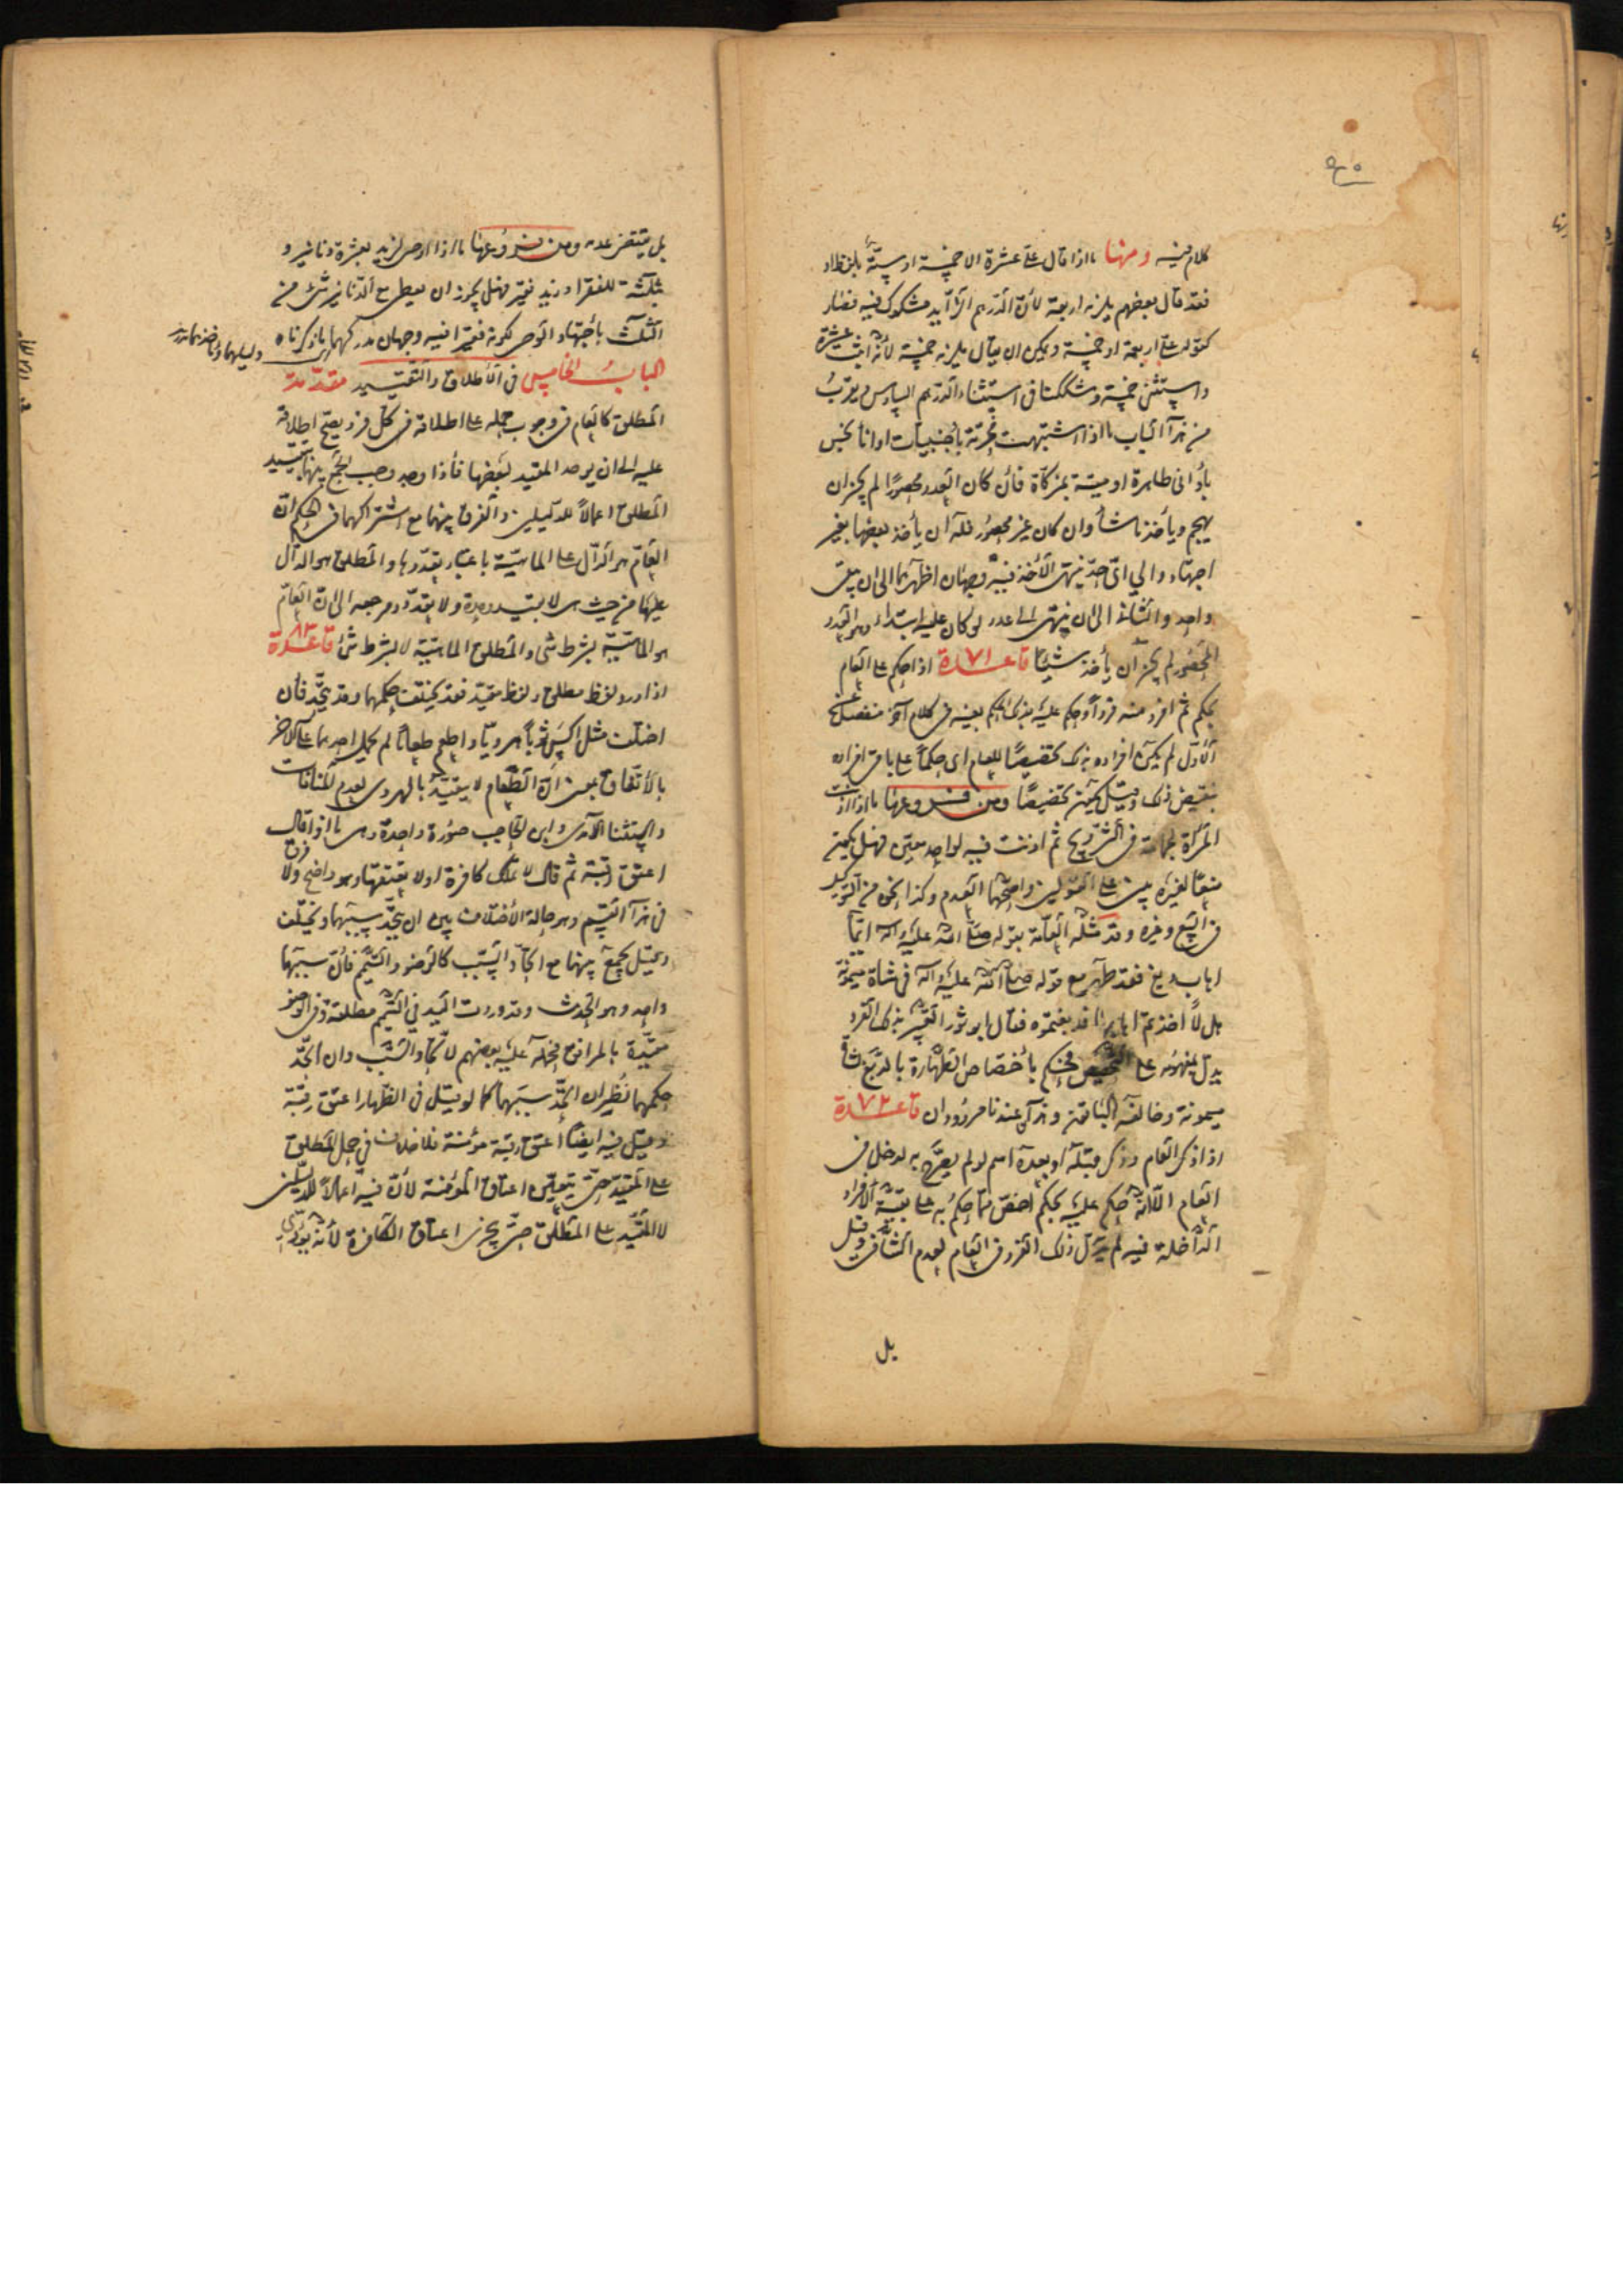 كلام فيه ومنها ما اذا قال علي عشرة الا خمسة او ستة بلفظ او
فقد قال بعضهم يلزمه اربعة لأن الدرهم الزايد مشكوك فيه فصار
كقوله علي اربعة او خمسة ويمكن ان يقال يلزمه خمسة لأنه اثبت عشرة
واستثنى خمسة وشككنا في استثناء الدرهم السادس ويقرب
من هذا الباب ما اذا اشتبهت محرمة بأجنبيات او اناء نجس
بأواني طاهرة او ميتة بمذكاة فان كان العدد محصورا لم يجز ان
يهجم ويأخذ ما شأ وان كان غير محصور فله ان يأخذ بعضها بغير
اجتهاد والى اى حد ينتهى الأخذ فيه وجهان اظهرهما الى ان يبقى
واحد والثاني الى ان ينتهى الى عدد لو كان عليه ابتداء وهو العدد
المحصور لم يجز ان يأخذ شيئا قاعدة ٧١ اذا حكم على العام
بحكم ثم افرد منه فردا وحكم عليه بذلك الحكم بعينه في كلام آخر منفصل عن
الأول لم يكن افراده بذلك تخصيصا للعام اى حكما على باقى افراده
بنقيض ذلك وقيل يكون تخصيصا ومن فروعها ما اذا اذنت
المرأة لجماعة في التزويج ثم اذنت فيه لواحد معين فهل يكون
منعا لغيره يبنى على القولين واصحهما العدم وكذا نحوه من التوكيل
في البيع وغيره وقد مثله العامة بقوله صلى الله عليه وآله ايما
اهاب دبغ فقد طهر مع قوله صلى الله عليه وآله في شاة ميمونة
هلا اخذتم اهابها فدبغتموه فقال ابو ثور التعبير بذلك الفرد
يدل بمفهومه على التخصيص فحكم بأختصاص الطهارة بالدبغ شاة
ميمونة وخالفه الباقون وهذان عندنا مردودان قاعدة ٧٢
اذا ذكر العام وذكر قبله او بعده اسم لو لم يصرح به لدخل في
العام الا انه حكم عليه بحكم اخص مما حكم به على بقية الأفراد
الداخلة فيه لم يزل ذلك الفرد في العام لعدم التنافي وقيل
بل
بل يقتضى عدمه ومن فروعها ما اذا اوصى لزيد بعشرة دنانير و
بثلثه للفقرا وزيد فقير فهل يجوز ان يعطى مع الدنانير شئ من
الثلث بأجتهاد الوصى لكونه فقيرا فيه وجهان مدركهما ما ذكرناه
الباب الخامس في الأطلاق والتقييد مقدمة
المطلق كالعام في وجوب حمله على اطلاقه في كل فرد يصح اطلاقه
عليه الى ان يوجد المقيد لبعضها فأذا وجد وجب الجمع بينهما بتقييد
المطلق اعمالا للدليلين والفرق بينهما مع اشتراكهما في الحكم ان
العام هو الدال على الماهية باعتبار تعددها والمطلق هو الدال
عليها من حيث هى لا بقيد وحدة ولا تعدد ومرجعه الى ان العام
هو الماهية بشرط شئ والمطلق الماهية لا بشرط شئ قاعدة ٨٣
اذا ورد لفظ مطلق ولفظ مقيد فقد يختلف حكمهما وقد يتحد فان
اختلف مثل اكس ثوبا هرويا واطعم طعاما لم يحمل احدهما على الآخر
بالأتفاق بمعنى ان الطعام لا يتقيد بالهروى لعدم المنافات
واستثنا الآمدى وابن الحاجب صورة واحدة وهى ما اذا قال
اعتق رقبة ثم قال لا تملك كافرة او لا تعتقها وهو واضح ولا فرق
في هذا القسم وهو حالة الأختلاف بين ان يتحد سببهما ويختلف
وقيل يجمع بينهما مع اتحاد السبب كالوضوء والتيمم فان سببهما
واحد وهو الحدث وقد وردت اليد في التيمم مطلقة وفي الوضوء
مقيدة بالمرافق فحمله عليه بعضهم لاتحاد السبب وان اتحد
حكمهما نظير ان اتحد سببهما كما لو قيل في الظهار اعتق رقبة
وقيل فيه ايضا اعتق رقبة مؤمنة فلا خلاف في حمل المطلق
على المقيد حتى يتعين اعتاق المؤمنة لأن فيه اعمالا للدليلين
لا المقيد على المطلق حتى يجزى اعتاق الكافرة لأنه يؤدى